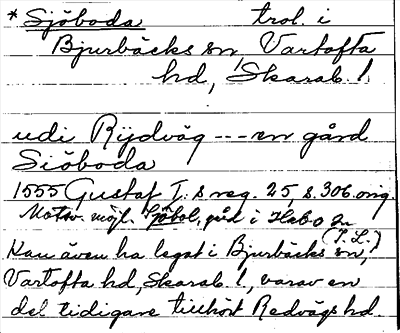 * Sjöboda trol. i
Bjurbäcks sn, Vartofta
hd, Skarab. l.
udi Rijdvåg --- en gård
Siöboda
1555 Gustaf I:s reg. 25, s. 306 orig.
Motsv. möjl. Sjöbol, gård i Habo sn
(I. L.)
Kan även ha legat i Bjurbäcks sn,
Vartofta hd, Skarab. l., varav en
del tidigare tillhört Redvägs hd.